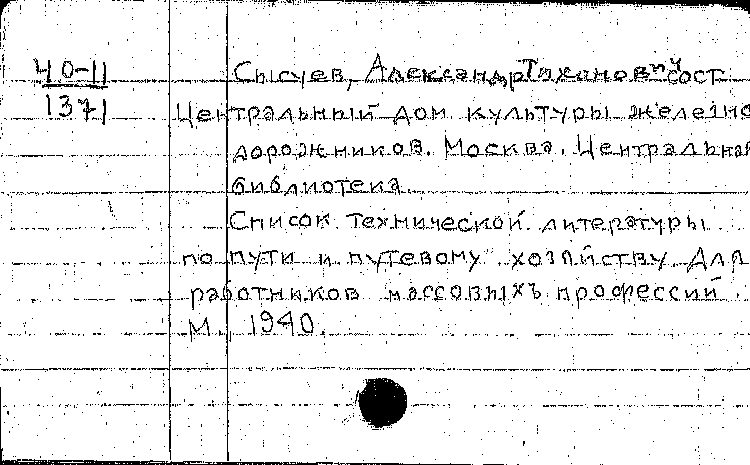 40-11
1371
Сысуев, Александр Тихонович сост.
Центральный дом культуры железно
дорожников. Москва. Центральная
библиотека.
Список технической литературы
по пути и путевому хозяйству. Для
работников массовыхъ профессий.
М., 1940.